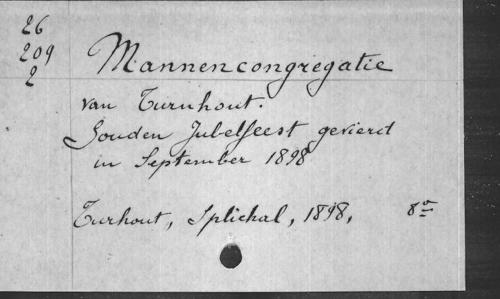 26
209
2
Mannencongregatie
van Turnhout.
Gouden Jubelfeest gevierd
in September 1898
Turhout, Splichal, 1898, 8º